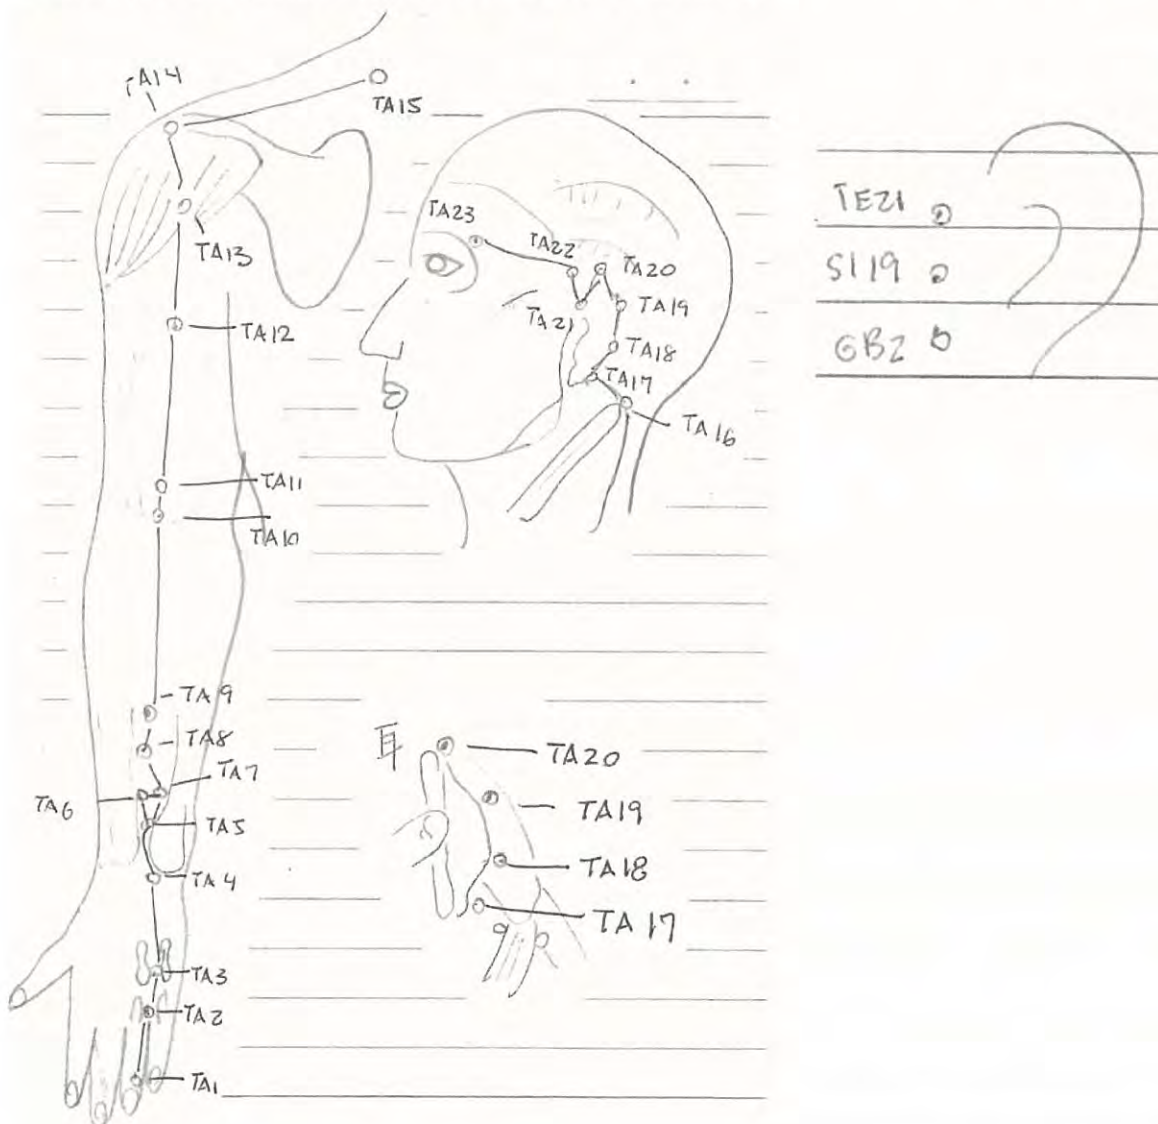 TA14
TA15
TA13
TA12
TA11
TA10
TA9
TA8
TA7
TA6
TA5
TA4
TA3
TA2
TA1
TA23
TA22
TA20
TA21
TA19
TA18
TA17
TA16
耳
TA20
TA19
TA18
TA17
TE21
SI19
GB2